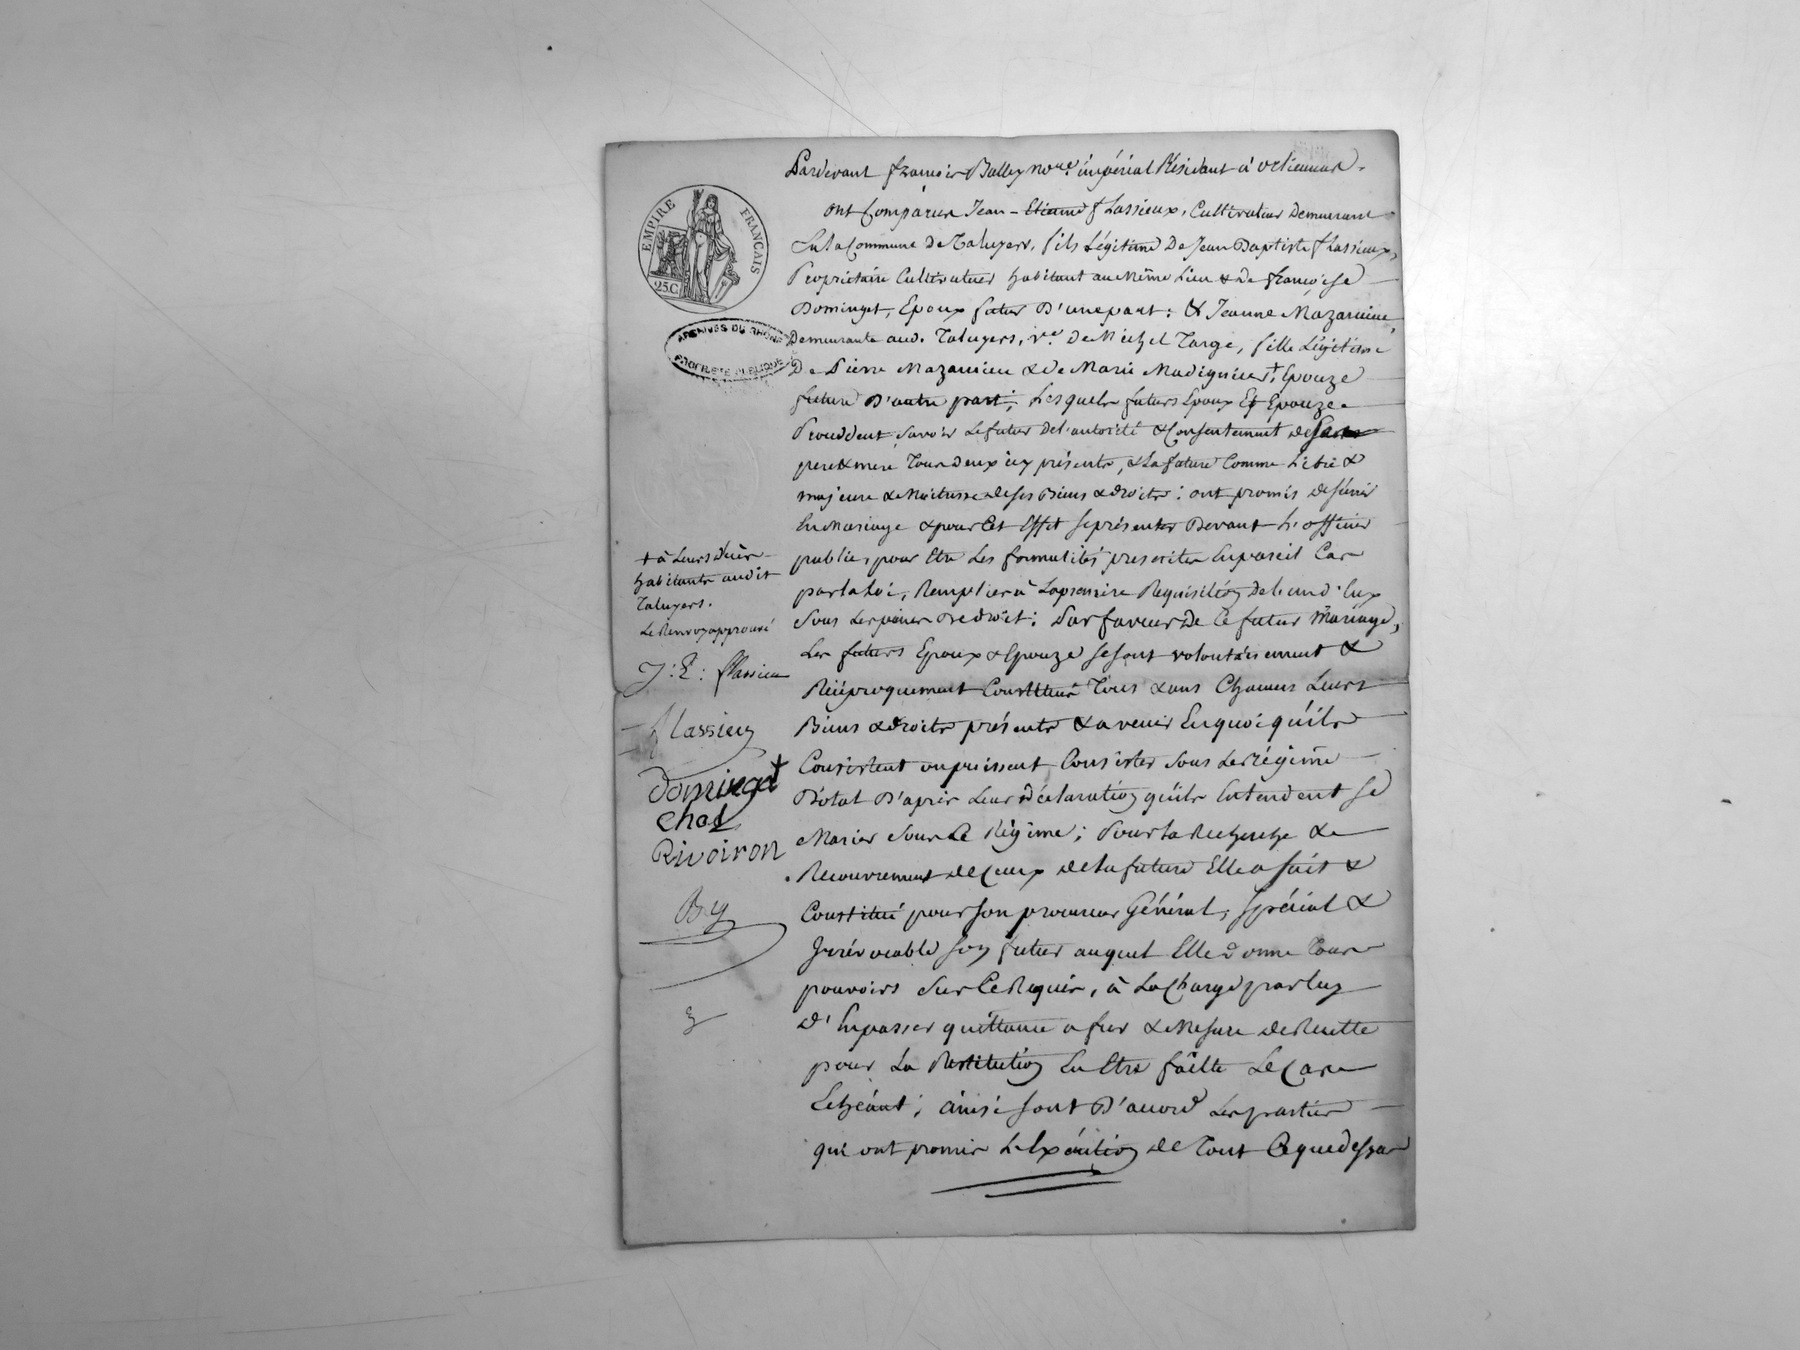 Pardevant françois Balley nore. impérial Résidant à orliennas.
ont Comparus Jean-Etienne flassieux, Cultivateur Demeurant
En la Commune De Taluyers, fils Légitime De Jean Baptiste flassieux,
Propriétaire Cultivateur habitant au Même Lieu & De françoise
Dominget, Epoux futur D'une part: & Jeanne Mazancieu,
Demeurante aud. Taluyers, ve. De Michel Targe, fille Légitime
De Pierre Mazancieu & de Marie Madignier +, Epouze
future D'autre part; Lesquels futurs Epoux Et Epouze
Procèdent, Savoir Le futur De l'autorité & Consentement de ses
pere & mere Tous deux icy présents, & La future Comme Libre &
majeure & Maitresse de ses Biens & droits: ont promis de s'unir
En Mariage & pour Cet Effet se présenter Devant L'officier
public, pour Etre Les formalités prescrites En pareil Cas
par la Loi, Remplies à La première Requisition De L'un d'Eux
sous Les peines De droit: En faveur De Ce futur Mariage,
Les futurs Epoux & Epouze se sont volontairement &
Réciproquement Constitués Tous & uns Chacuns Leurs
Biens & droits présents & a venir En quoi qu'ils
Consistent ou puissent Consister sous Le Régime
Dotal D'après Leur Déclaration qu'ils Entendent se
Marier sous Ce Régime; Pour La Recherche &
Recouvrement de Ceux de La future Elle a fait &
Constitué pour son procureur Général, spécial &
Irrévocable son futur auquel Elle donne Tous
pouvoirs sur Ce Requis, à La Charge par luy
D'En passer quittance a fur & Mesure de Recette
pour La Restitution En Etre faitte Le Cas
Echéant; ainsi sont D'accord Les parties
qui ont promis L'Exécution de Tout Ce que dessus
EMPIRE FRANÇAIS
25.C
ARCHIVES DU RHÔNE
PROPRIÉTÉ PUBLIQUE
+ à Leurs Décès
habitants audit
Taluyers.
Le Renvoy approuvé
J: E: flassieu
flassieu
Dominget
chol
Rivoiron
By